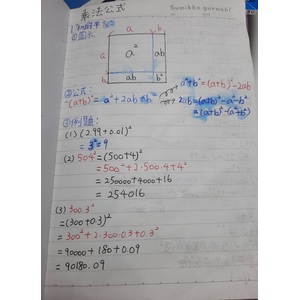 乘法公式
Sumikko gurashi
1.和的平方
①圖示
a b
a a² ab a
b ab b² b
a b
②公式:
(a+b)² = a² + 2ab + b²
a²+b² = (a+b)² - 2ab
2ab = (a+b)² - a² - b²
= (a+b)² - (a²+b²)
③例題:
(1) (2.99+0.01)²
= 3² = 9
(2) 504² = (500+4)²
= 500² + 2·500·4 + 4²
= 250000 + 4000 + 16
= 254016
(3) 300.3²
= (300+0.3)²
= 300² + 2·300·0.3 + 0.3²
= 90000 + 180 + 0.09
= 90180.09